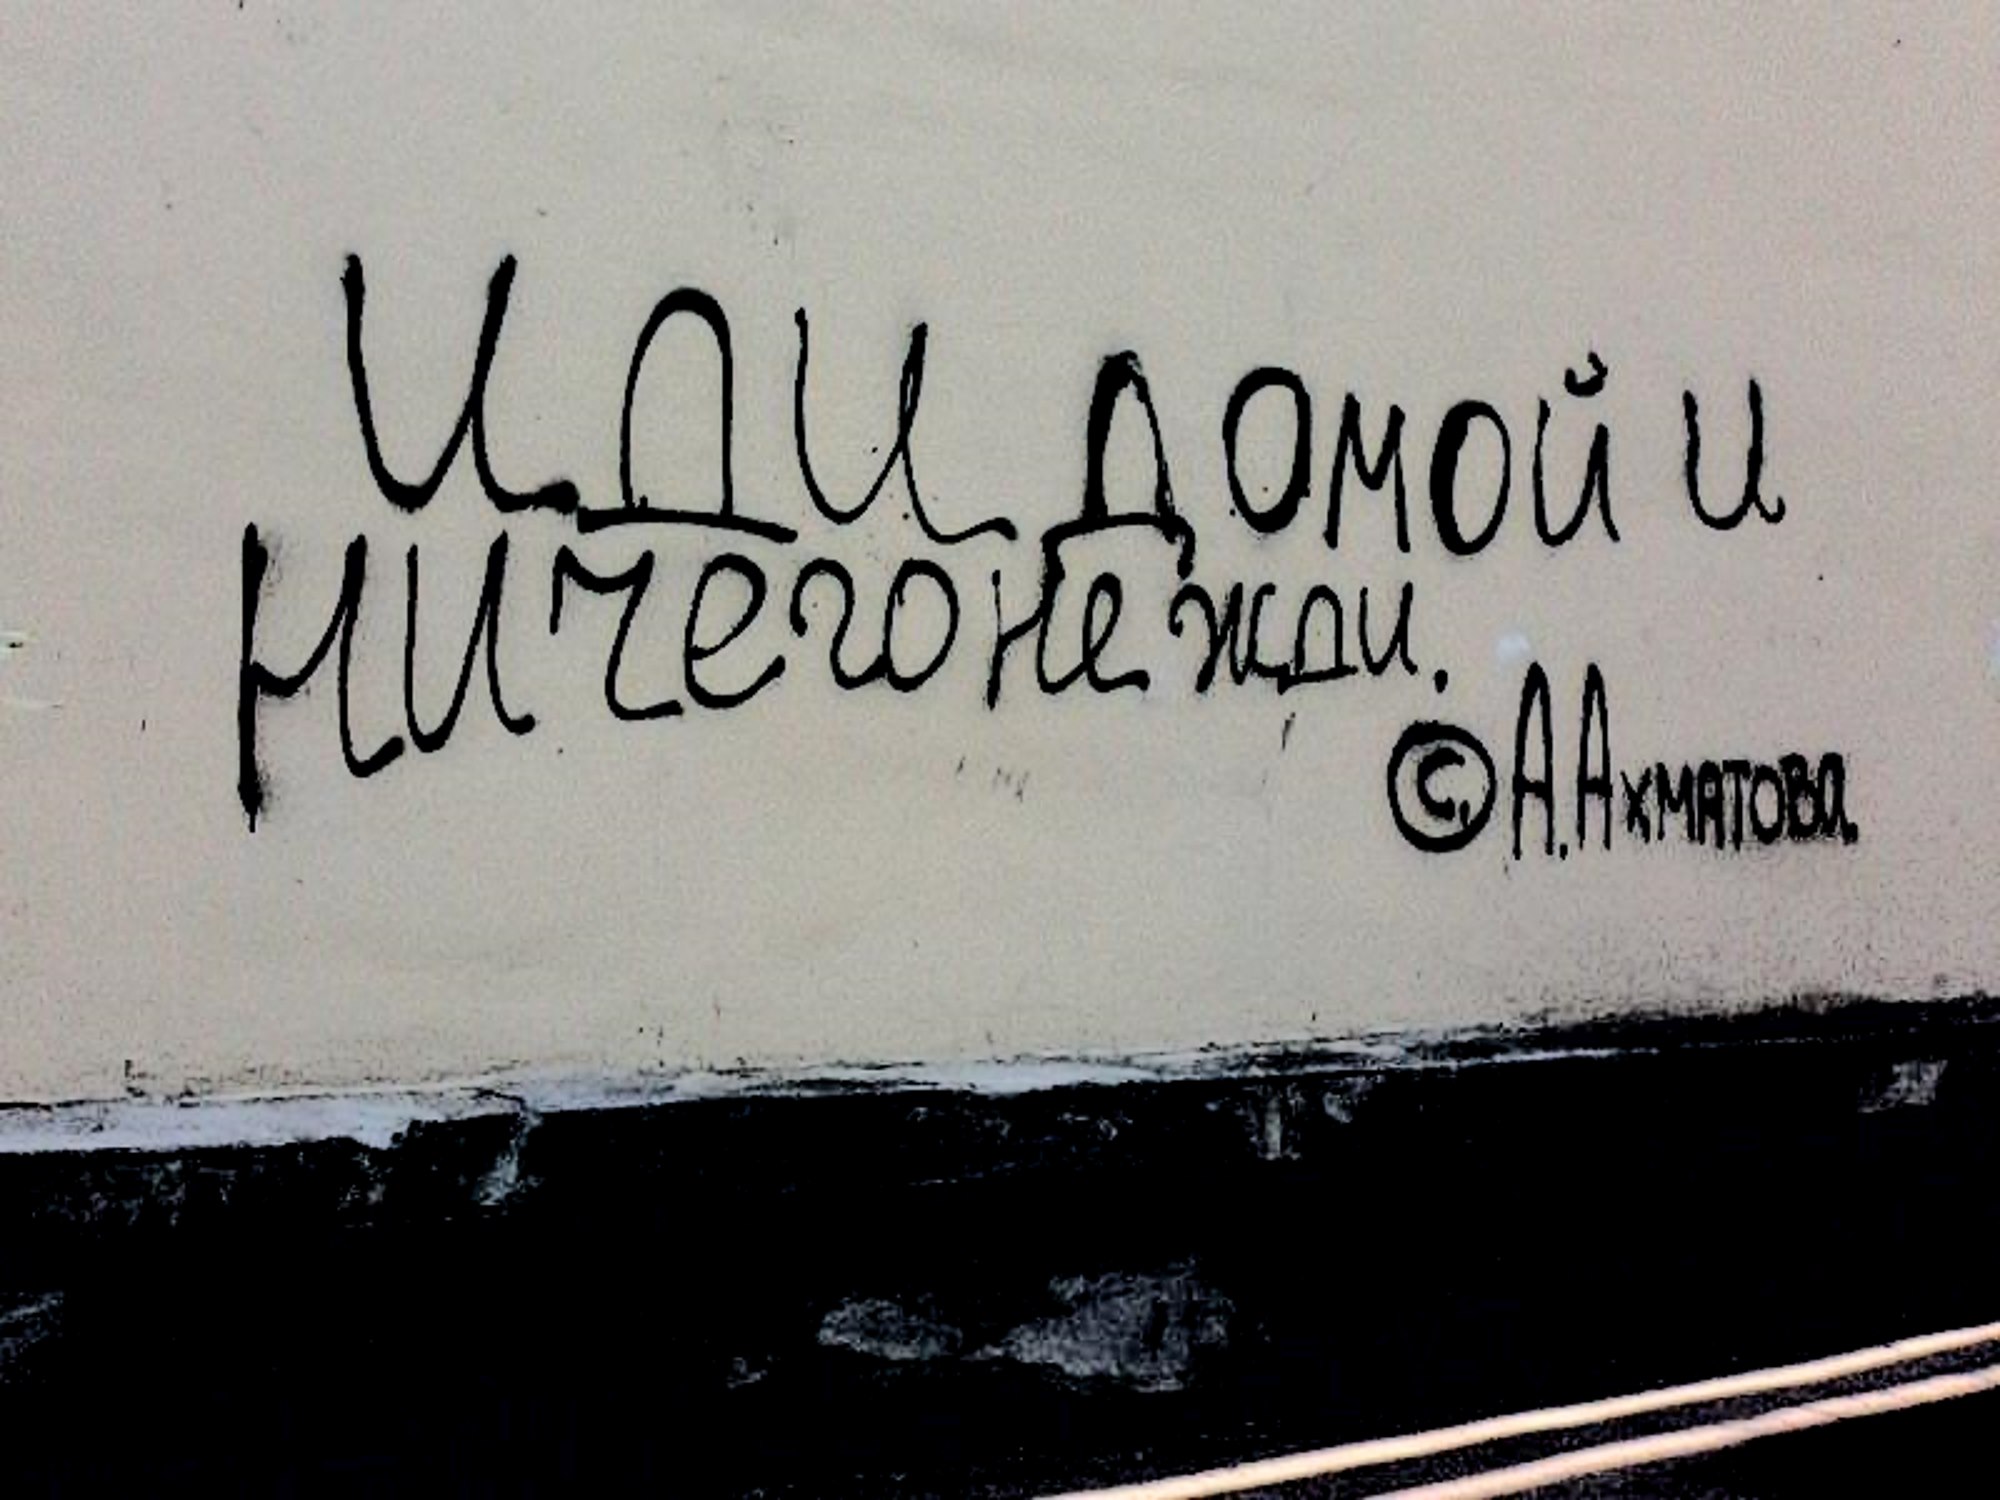 Иди домой и
ничего не жди.
© А. Ахматова.